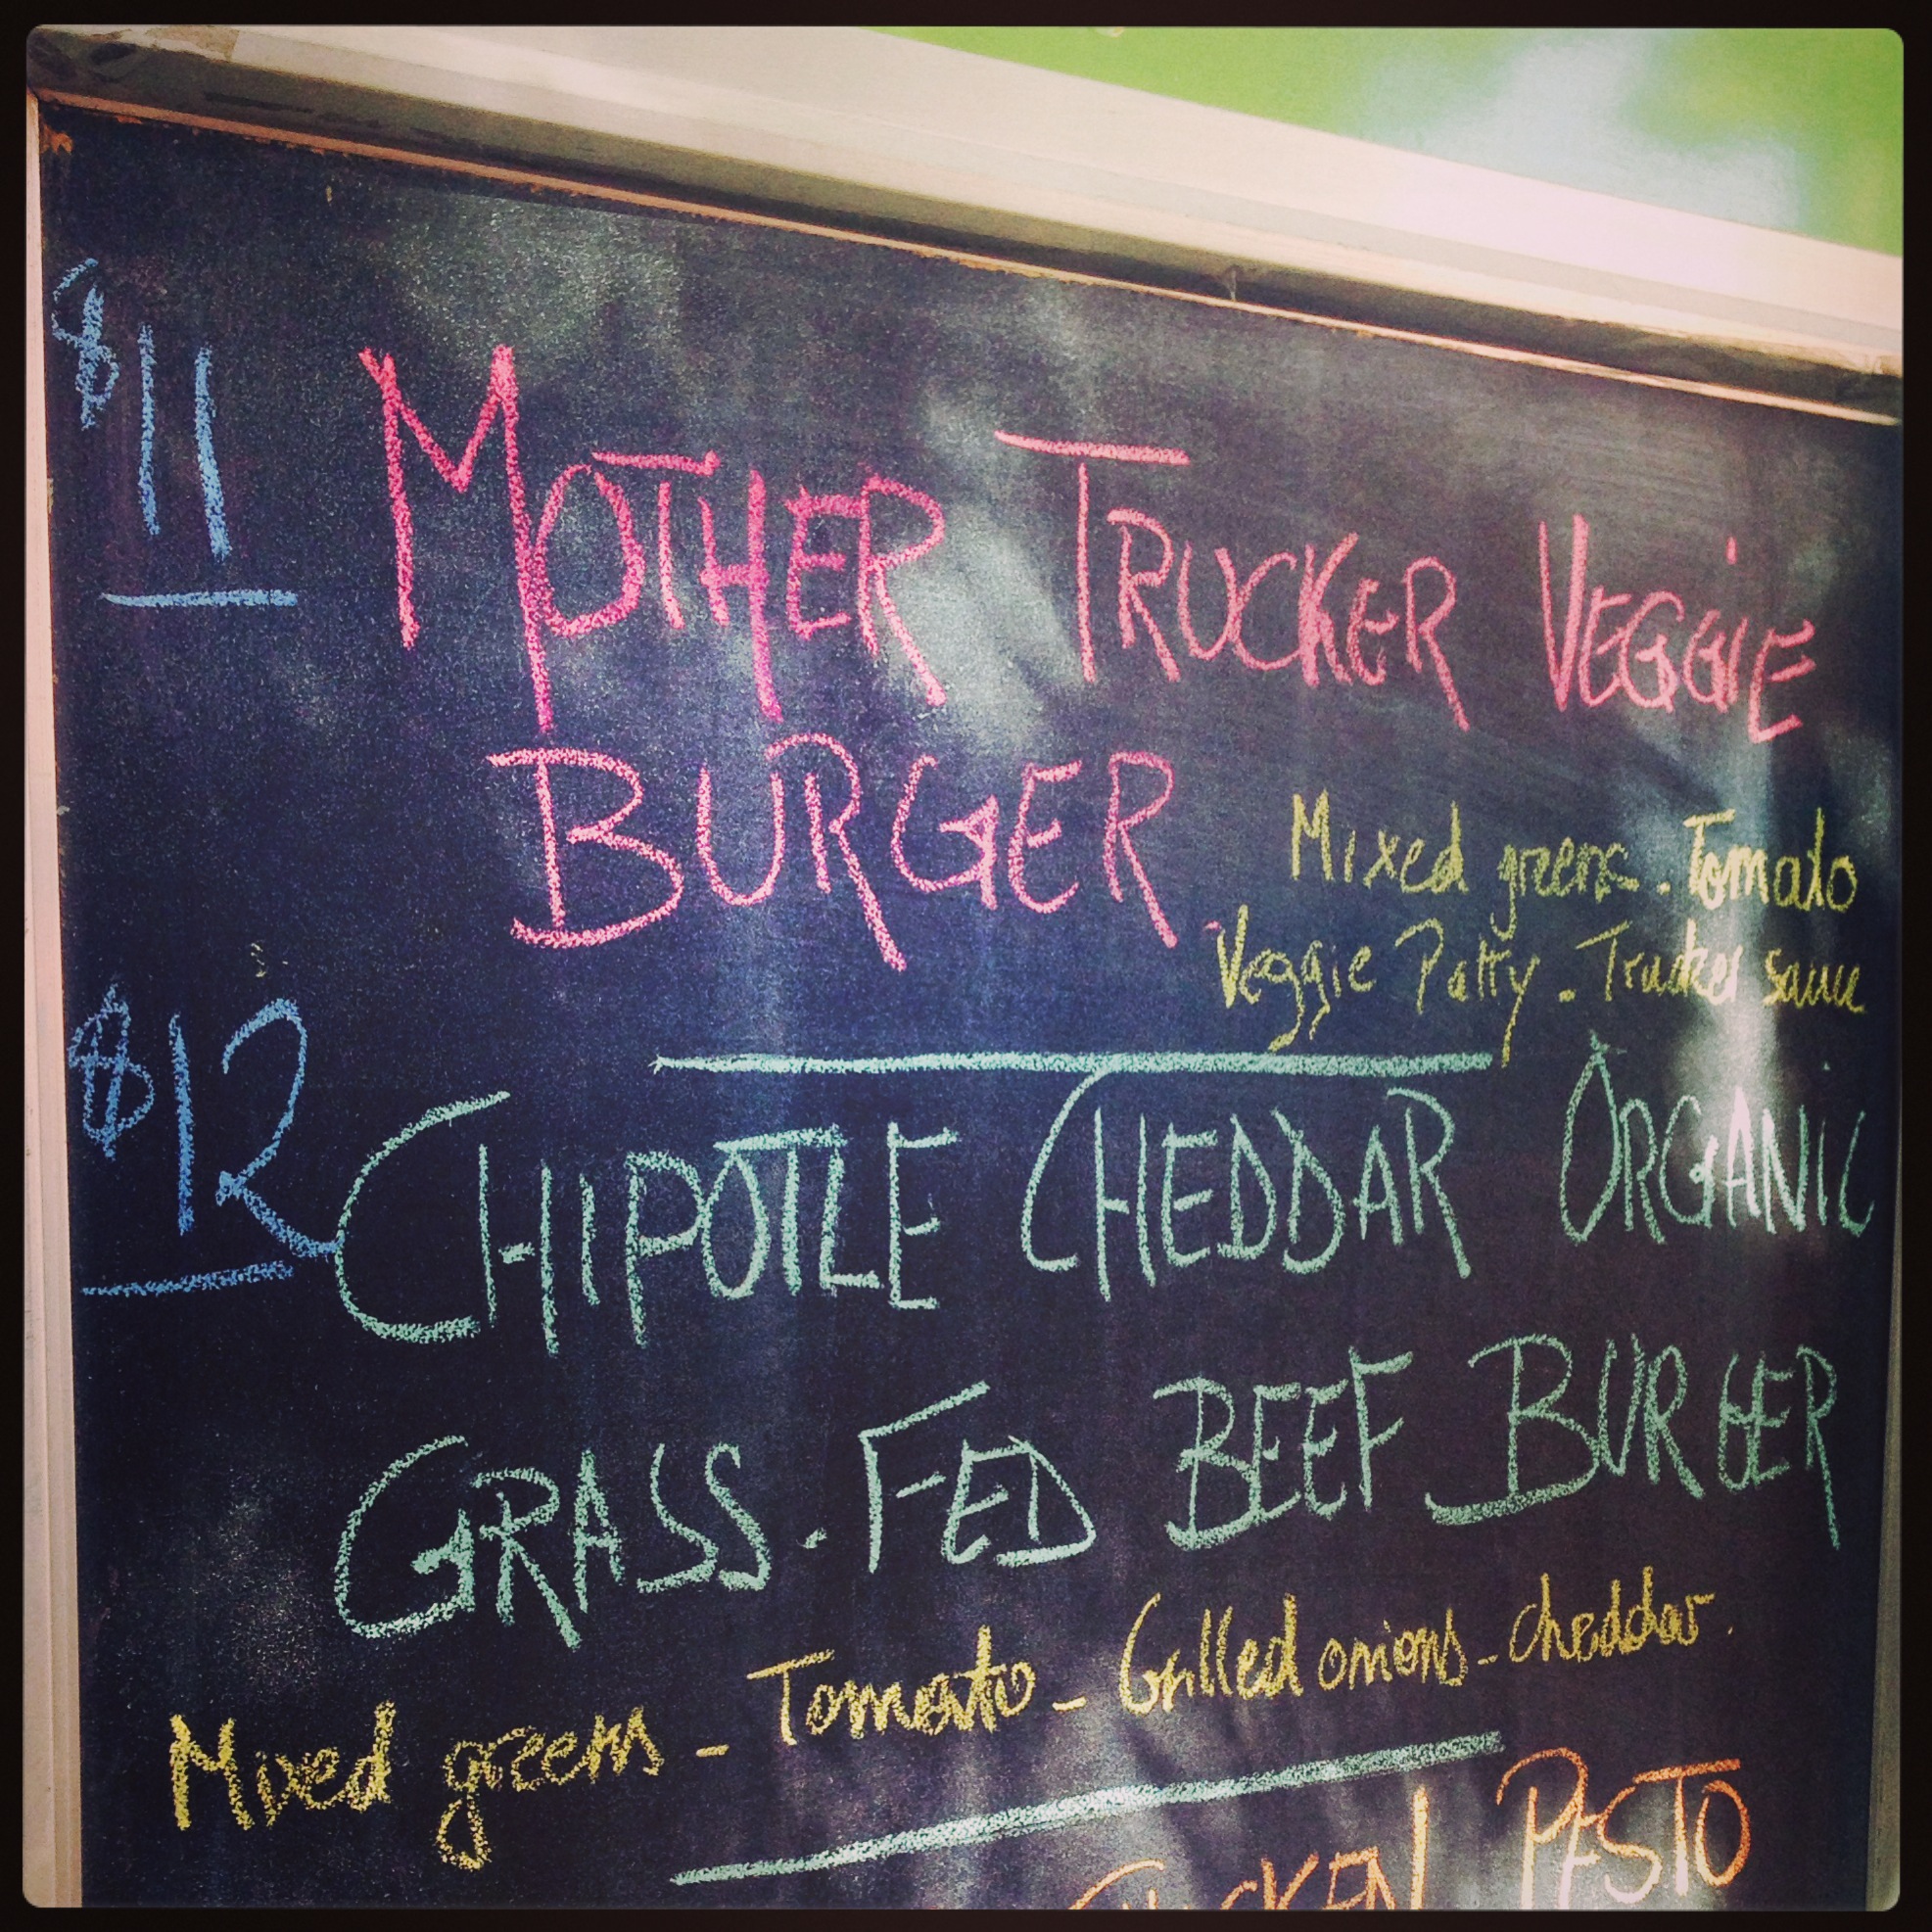 $11
MOTHER TRUCKER VEGGIE
BURGER
Mixed greens - Tomato
Veggie Patty - Trucker sauce
$12
CHIPOTLE CHEDDAR ORGANIC
GRASS-FED BEEF BURGER
Mixed greens - Tomato - Grilled onions - cheddar.
CHICKEN PESTO